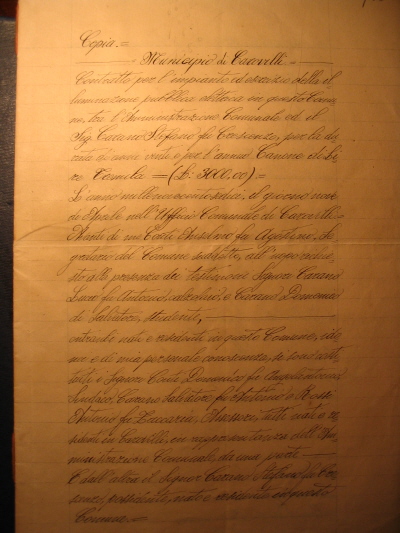 Copia =
Municipio di Carovilli
Contratto per l'impianto ed esercizio della il
luminazione pubblica elettrica in questo Comu
ne tra l'Amministrazione Comunale ed il
Sig. Carano Stefano fu Crescenzo, per la du
rata di anni venti e per l'annuo Canone di Li
re Tremila = (L: 3000,00) =
L'anno millenovecentosedici, il giorno nove
di Aprile nell'Ufficio Comunale di Carovilli =
Avanti di me Conti Anselmo fu Agostino, Se
gretario del Comune suddetto, all'uopo richie
sto alla presenza dei testimoni Signori Carano
Luca fu Antonio, calzolaio, e Carano Domenico
di Salvatore, studente,
entrambi nati e residenti in questo Comune, ido
nei e di mia personale conoscenza, si sono costi
tuiti i Signori Conti Domenico fu
Sindaco, Carano Salvatore fu Antonio e Rossi
Antonio fu Zaccaria, Assessori, tutti nati e re
sidenti in Carovilli, in rappresentanza dell'Am
ministrazione Comunale, da una parte
E dall'altra il Signor Carano Stefano fu Cre
scenzo, possidente, nato e residente in questo
Comune =